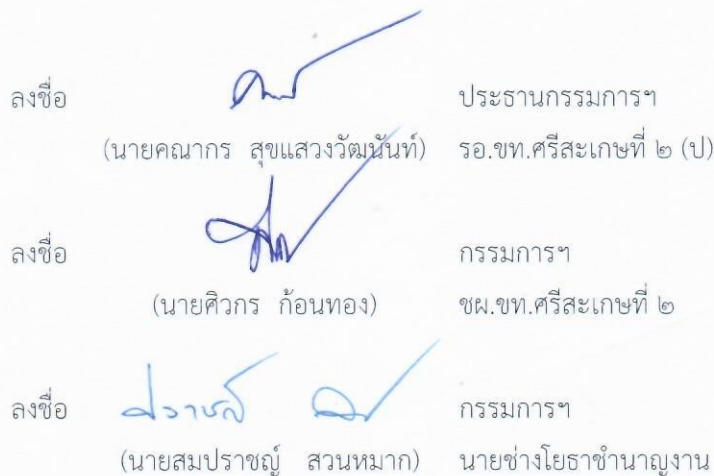 ลงชื่อ ประธานกรรมการฯ
(นายคณากร สุขแสวงวัฒนันท์) รอ.ขท.ศรีสะเกษที่ ๒ (ป)
ลงชื่อ กรรมการฯ
(นายศิวกร ก้อนทอง) ชผ.ขท.ศรีสะเกษที่ ๒
ลงชื่อ กรรมการฯ
(นายสมปราชญ์ สวนหมาก) นายช่างโยธาชำนาญงาน